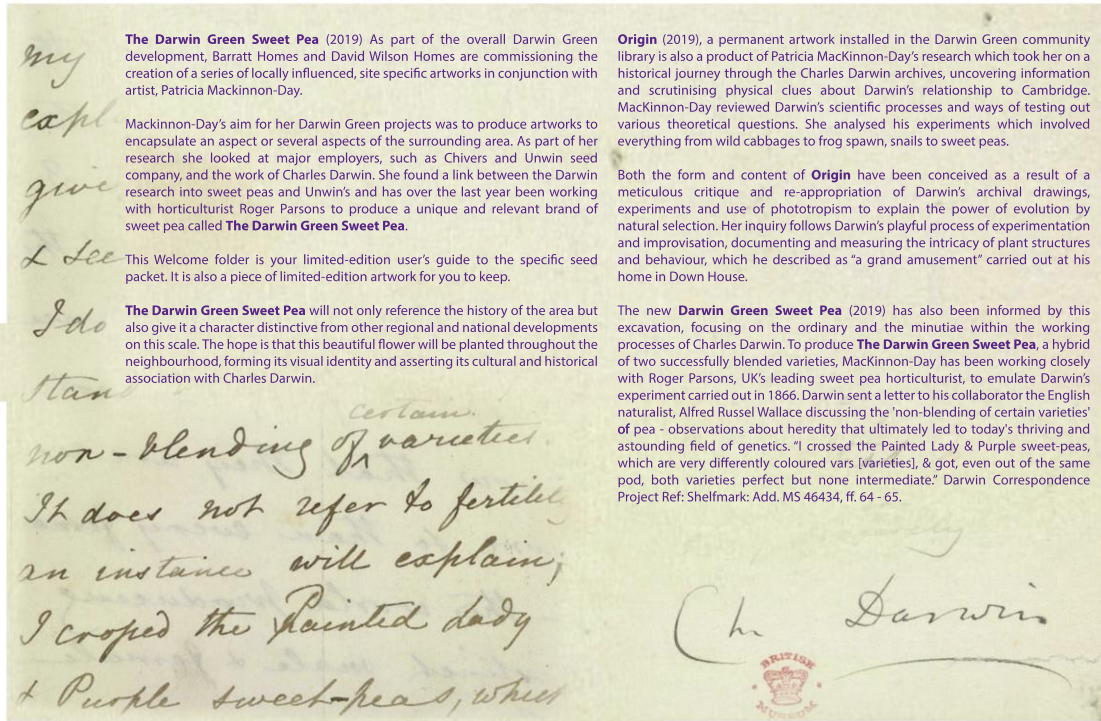 The Darwin Green Sweet Pea (2019) As part of the overall Darwin Green
development, Barratt Homes and David Wilson Homes are commissioning the
creation of a series of locally influenced, site specific artworks in conjunction with
artist, Patricia Mackinnon-Day.
Mackinnon-Day's aim for her Darwin Green projects was to produce artworks to
encapsulate an aspect or several aspects of the surrounding area. As part of her
research she looked at major employers, such as Chivers and Unwin seed
company, and the work of Charles Darwin. She found a link between the Darwin
research into sweet peas and Unwin's and has over the last year been working
with horticulturist Roger Parsons to produce a unique and relevant brand of
sweet pea called The Darwin Green Sweet Pea.
This Welcome folder is your limited-edition user's guide to the specific seed
packet. It is also a piece of limited-edition artwork for you to keep.
The Darwin Green Sweet Pea will not only reference the history of the area but
also give it a character distinctive from other regional and national developments
on this scale. The hope is that this beautiful flower will be planted throughout the
neighbourhood, forming its visual identity and asserting its cultural and historical
association with Charles Darwin.
Origin (2019), a permanent artwork installed in the Darwin Green community
library is also a product of Patricia MacKinnon-Day's research which took her on a
historical journey through the Charles Darwin archives, uncovering information
and scrutinising physical clues about Darwin's relationship to Cambridge.
MacKinnon-Day reviewed Darwin's scientific processes and ways of testing out
various theoretical questions. She analysed his experiments which involved
everything from wild cabbages to frog spawn, snails to sweet peas.
Both the form and content of Origin have been conceived as a result of a
meticulous critique and re-appropriation of Darwin's archival drawings,
experiments and use of phototropism to explain the power of evolution by
natural selection. Her inquiry follows Darwin's playful process of experimentation
and improvisation, documenting and measuring the intricacy of plant structures
and behaviour, which he described as "a grand amusement" carried out at his
home in Down House.
The new Darwin Green Sweet Pea (2019) has also been informed by this
excavation, focusing on the ordinary and the minutiae within the working
processes of Charles Darwin. To produce The Darwin Green Sweet Pea, a hybrid
of two successfully blended varieties, MacKinnon-Day has been working closely
with Roger Parsons, UK's leading sweet pea horticulturist, to emulate Darwin's
experiment carried out in 1866. Darwin sent a letter to his collaborator the English
naturalist, Alfred Russel Wallace discussing the 'non-blending of certain varieties'
of pea - observations about heredity that ultimately led to today's thriving and
astounding field of genetics. "I crossed the Painted Lady & Purple sweet-peas,
which are very differently coloured vars [varieties], & got, even out of the same
pod, both varieties perfect but none intermediate." Darwin Correspondence
Project Ref: Shelfmark: Add. MS 46434, ff. 64 - 65.
my
expl
give
& see
I do
stand
certain
non-blending of varieties.
It does not refer to fertility
an instance will explain;
I crossed the Painted Lady
& Purple sweet-peas, which
Ch Darwin
BRITISH
MUSEUM